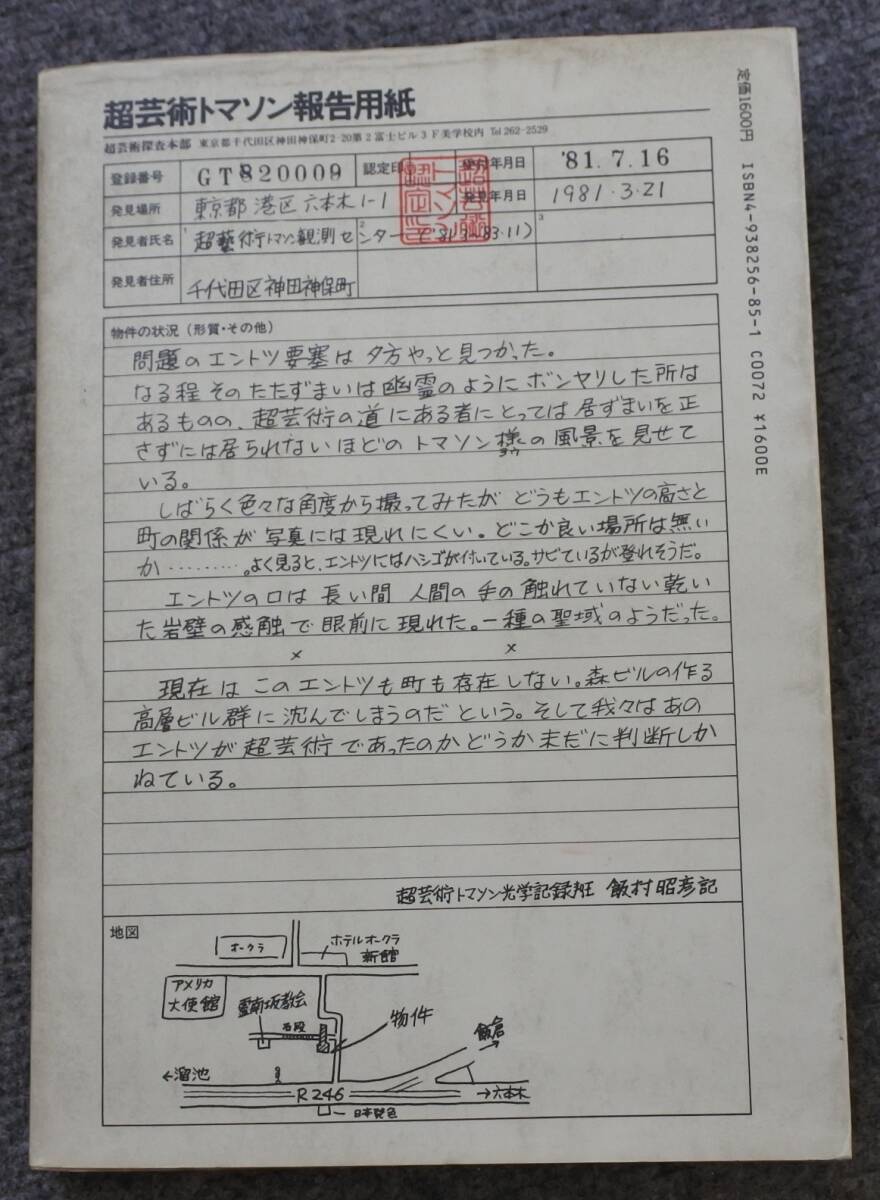 超芸術トマソン報告用紙
超芸術探査本部 東京都千代田区神田神保町2-20第2富士ビル3F美学校内 Tel 262-2529
登録番号 GT820009 認定印 受付年月日 '81.7.16
発見場所 東京都港区六本木1-1 発見年月日 1981・3・21
発見者氏名 1 超藝術トマソン観測センター ('81.3~83.11) 2 3
発見者住所 千代田区神田神保町
物件の状況(形質・その他)
問題のエントツ要塞は夕方やっと見つかった。
なる程そのたたずまいは幽霊のようにボンヤリした所は
あるものの、超芸術の道にある者にとっては居ずまいを正
さずには居られないほどのトマソン様の風景を見せて
いる。
しばらく色々な角度から撮ってみたがどうもエントツの高さと
町の関係が写真には現れにくい。どこか良い場所は無い
か………。よく見ると、エントツにはハシゴが付いている。サビているが登れそうだ。
エントツの口は長い間人間の手の触れていない乾い
た岩壁の感触で眼前に現れた。一種の聖域のようだった。
× ×
現在はこのエントツも町も存在しない。森ビルの作る
高層ビル群に沈んでしまうのだという。そして我々はあの
エントツが超芸術であったのかどうか未だに判断しか
ねている。
超芸術トマソン光学記録班 飯村昭彦記
地図
オークラ
ホテルオークラ
新館
アメリカ
大使館
霊南坂教会
石段
物件
飯倉
→
←溜池
R246
→六本木
日本発色
定価1600円 ISBN4-938256-85-1 C0072 ¥1600E